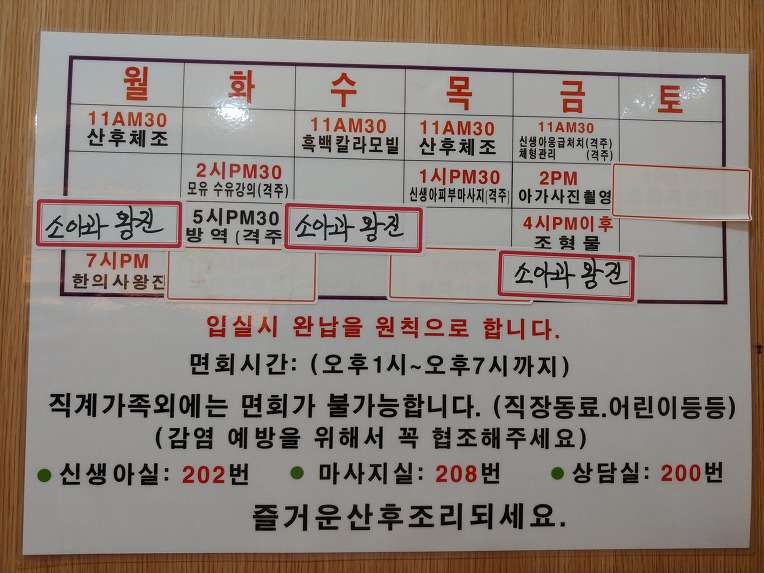 월 화 수 목 금 토
11AM30 산후체조
11AM30 흑백칼라모빌
11AM30 산후체조
11AM30 신생아응급처치(격주) 체형관리 (격주)
2시PM30 모유 수유강의(격주)
1시PM30 신생아피부마사지(격주)
2PM 아가사진촬영
소아과 왕진
5시PM30 방역 (격주
소아과 왕진
4시PM이후 조형물
7시PM 한의사왕진
소아과 왕진
입실시 완납을 원칙으로 합니다.
면회시간: (오후1시~오후7시까지)
직계가족외에는 면회가 불가능합니다. (직장동료.어린이등등)
(감염 예방을 위해서 꼭 협조해주세요)
● 신생아실: 202번 ● 마사지실: 208번 ● 상담실: 200번
즐거운산후조리되세요.